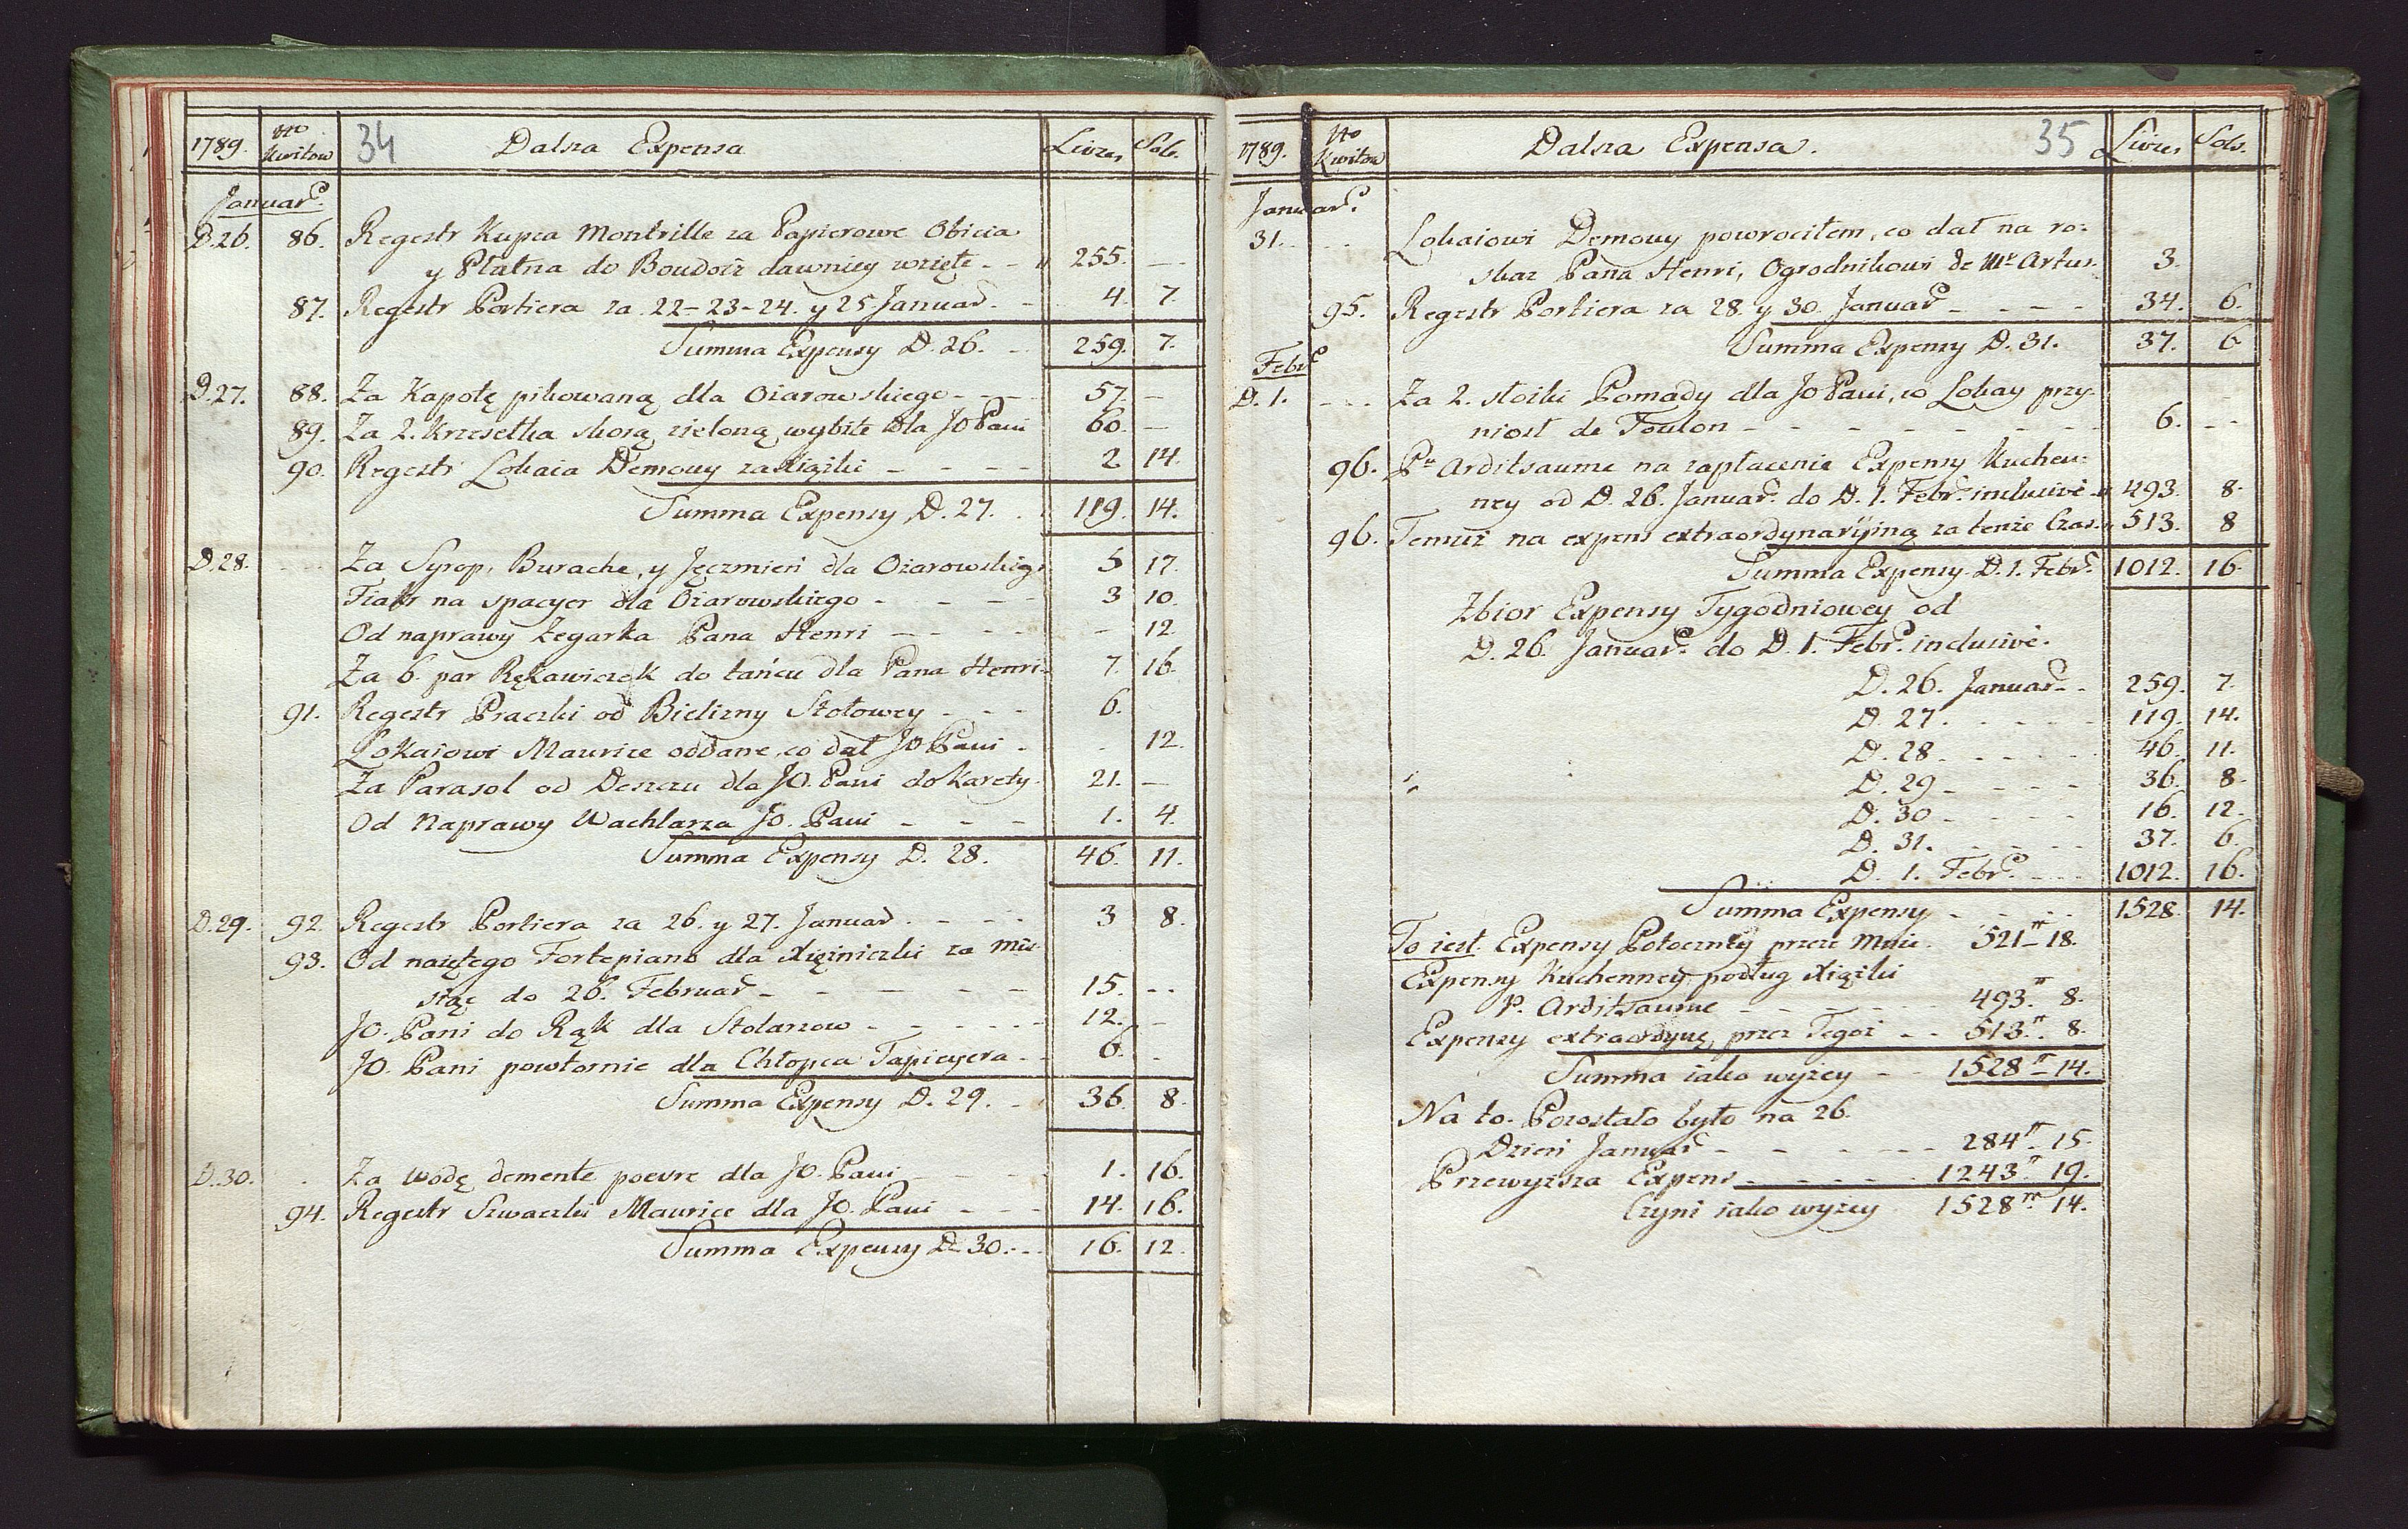 1789. No Kwitow 34 Dalsza Expensa Livres Sols.
Januar.
D. 26. 86. Regestr Kupca Montrille za Papierowe Obicia
y Płatna do Boudoir dawniey wzięte - - 255. -
87. Regestr Portiera za 22-23-24. y 25 Januar. - 4. 7.
Summa Expensy D. 26. - 259. 7.
D. 27. 88. Za Kapotę pikowaną dla Ożarowskiego - - - 57. -
89. Za 2. Krzesełka skorą zieloną wybite dla JO Pani 60. -
90. Regestr Lokaia Demouy za Xiążki - - - - 2 14.
Summa Expensy D. 27. 119. 14.
D. 28. Za Syrop, Burache, y Jęczmień dla Ożarowskiego 5 17.
Fiakr na spacyer dla Ożarowskiego - - - - 3 10.
Od naprawy Zegarka Pana Henri - - - - - 12
Za 6. par Rękawiczek do tańcu dla Pana Henri - 7. 16.
91. Regestr Praczki od Bielizny Stołowey - - - 6.
Lokaiowi Maurice oddane, co dał JO Pani - - 12.
Za Parasol od Deszczu dla JO. Pani do Karety. 21. -
Od Naprawy Wachlarza JO. Pani - - - 1. 4.
Summa Expensy D. 28. 46. 11.
D. 29. 92. Regestr Portiera za 26. y 27. Januar. - - - 3 8.
93. Od naiętego Fortepiano dla Xiężniczki za mie-
siąc do 26. Februar. - - - - - 15. - -
JO. Pani do Rąk dla Stolarzow - - - - - 12. -
JO. Pani powtornie dla Chłopca Tapicyera - - 6. -
Summa Expensy D. 29. - 36. 8.
D. 30. Za Wodę demente poevre dla JO. Pani - - 1. 16.
94. Regestr Szwaczki Maurice dla JO. Pani - - - 14. 16.
Summa Expensy D. 30. - - 16. 12.
1789. No Kwitow Dalsza Expensa. 35 Livres Sols.
Januar.
31. - - Lokaiowi Demouy powrociłem, co dał na ro-
skaz Pana Henri, Ogrodnikowi de Mr. Artus. 3.
95. Regestr Portiera za 28. y 30. Januar. - - - - 34. 6.
Summa Expensy D. 31. 37. 6
Febr.
D. 1. - - - Za 2. słoiki Pomady dla JO Pani, co Lokay przy-
niosł de Toulon - - - - - - - - 6. - -
96. Pu Arditsaume na zapłacenie Expensy Kuchen-
ney od D. 26. Januar. do D. 1. Febr. inclusive. 493. 8.
96. Temuż na expens extraordynaryiną za tenże Czas. 513. 8
Summa Expensy D. 1. Febr. 1012. 16.
Zbior Expensy Tygodniowey od
D. 26. Januar. do D. 1. Febr. inclusive.
D. 26. Januar. - 259. 7.
D. 27. - - - - 119. 14.
D. 28 - - - - 46. 11.
D. 29 - - - - 36. 8.
D. 30 - - - - 16. 12.
D. 31. - - - - 37. 6.
D. 1. Febr. - - - 1012. 16.
Summa Expensy - - - - 1528. 14.
To iest. Expensy Potoczney przez Mnie. 521 tt 18.
Expensy Kuchenney podług Xiążki
P. Arditsaume - - - - 493. tt 8.
Expensy extraordyne, przez Tegoż - - 513. tt 8.
Summa iako wyzey - - 1528 tt 14.
Na to. Pozostało było na 26.
Dzień Januar. - - - - - 284 tt 15.
Przewyzsza Expens - - - - - 1243. tt 19.
Czyni iako wyzey 1528 tt 14.